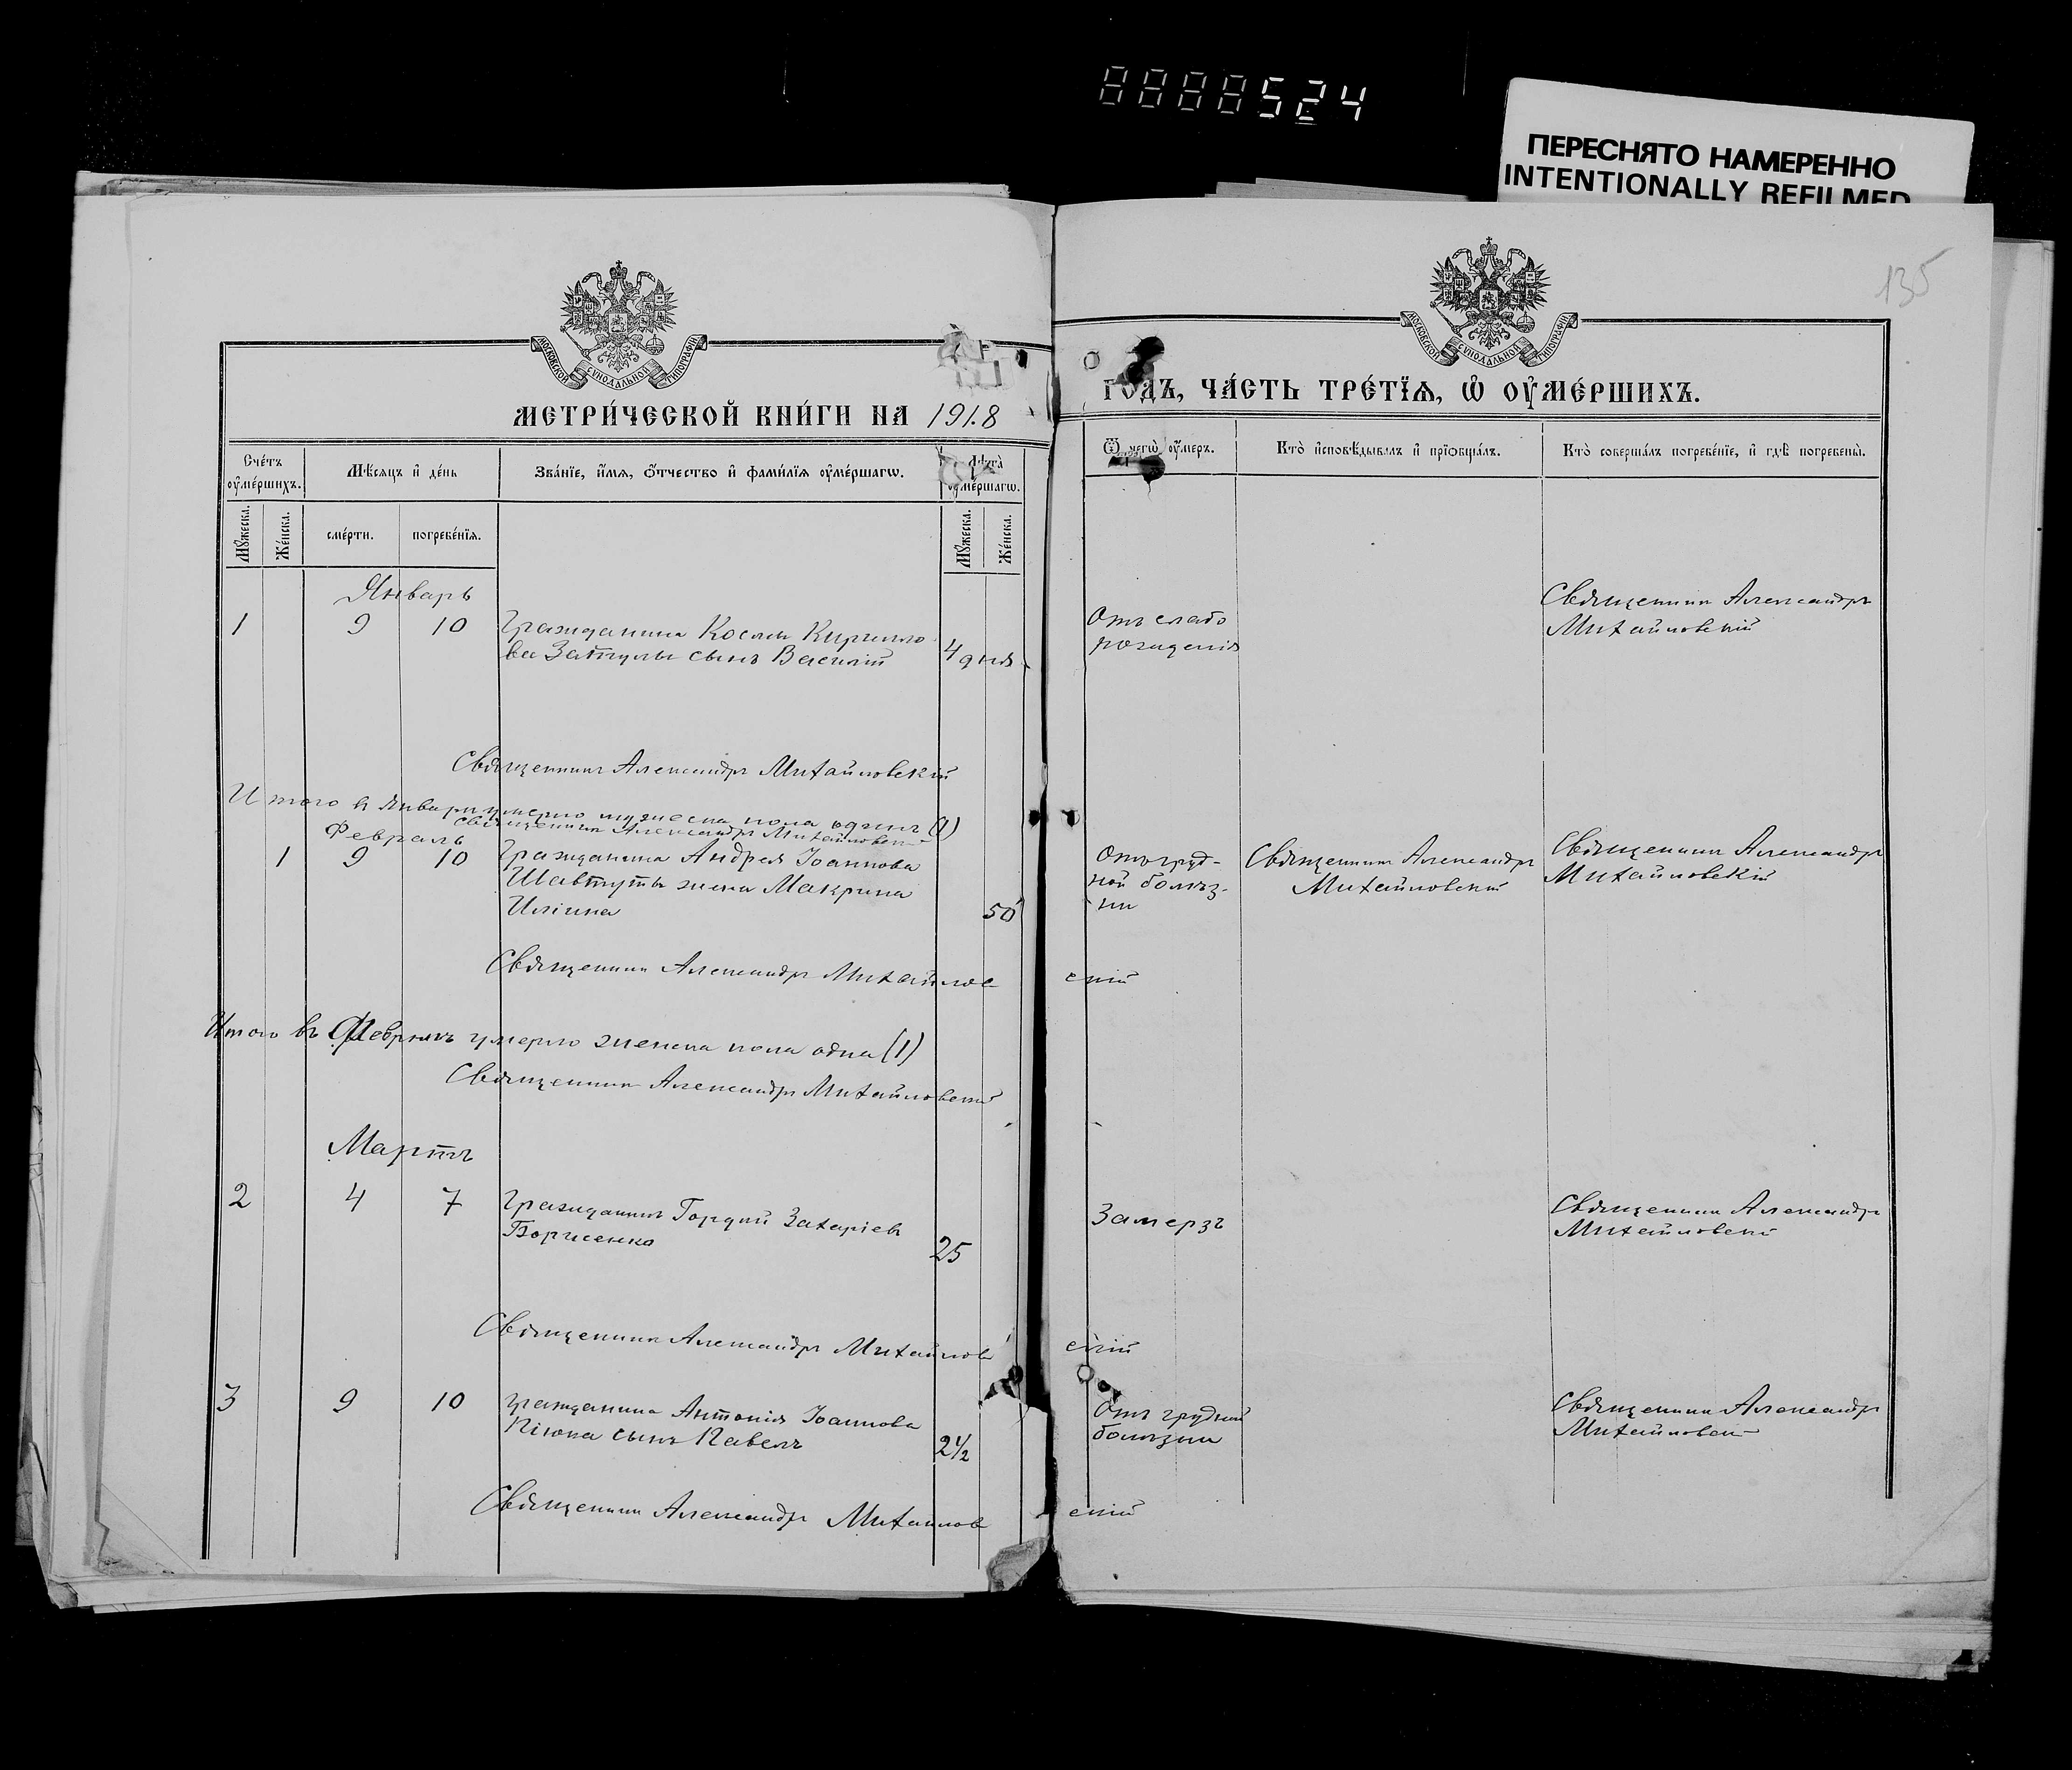 0000524
ПЕРЕСНЯТО НАМЕРЕННО
INTENTIONALLY REFILMED
135
МОСКОВСКОЙ СѴНОДАЛЬНОЙ ТИПОГРАФІИ
МОСКОВСКОЙ СѴНОДАЛЬНОЙ ТИПОГРАФІИ
МЕТРИ́ЧЕСКОЙ КНИ́ГИ НА 1918
ГОДЪ, ЧА́СТЬ ТРЕ́ТЇѦ, Ѡ҆ ОУ҆МЕ́РШИХЪ.
Сче́тъ оу҆ме́ршихъ.
Мѣ́сѧцъ и҆ де́нь
Зва́нїе, и҆́мѧ, ѻ҆́тчество и҆ фами́лїѧ оу҆ме́ршагѡ.
Лѣ́та̀ оу҆ме́ршагѡ.
Ѿ чегѡ̀ оу҆́меръ.
Кто̀ и҆сповѣ́дывалъ и҆ прїѡбща́лъ.
Кто̀ соверша́лъ погребе́нїе, и҆ гдѣ̀ погребены̀.
Мꙋ́жеска.
Же́нска.
сме́рти.
погребе́нїѧ.
Мꙋ́жеска.
Же́нска.
Январь
1 9 10 Гражданина Космы Кирилло
ва Затулы сынъ Василій 4 дня
Отъ слабо
рожденія
Священникъ Александръ
Михайловскій
Священникъ Александръ Михайловскій
Итого въ Январѣ умерло мужеска пола одинъ (1)
Священникъ Александръ Михайловск
Февраль
1 9 10 Гражданина Андрея Іоаннова
Шавтуты жена Макрина
Илiина 50
Отъ груд-
ной болѣз-
ни
Священникъ Александръ
Михайловскій
Священникъ Александръ
Михайловскій
Священникъ Александръ Михайлов скій
Итого въ Февралѣ умерло женска пола одна (1)
Священникъ Александръ Михайловскій
Мартъ
2 4 7 Гражданинъ Гордій Захаріевъ
Борисенко 25
Замерзъ
Священникъ Александръ
Михайловскій
Священникъ Александръ Михайлов скій
3 9 10 Гражданина Антонія Іоаннова
сынъ Павелъ 2½
Отъ грудной
болѣзни
Священникъ Александръ
Михайловск
Священникъ Александръ Михайлов скій